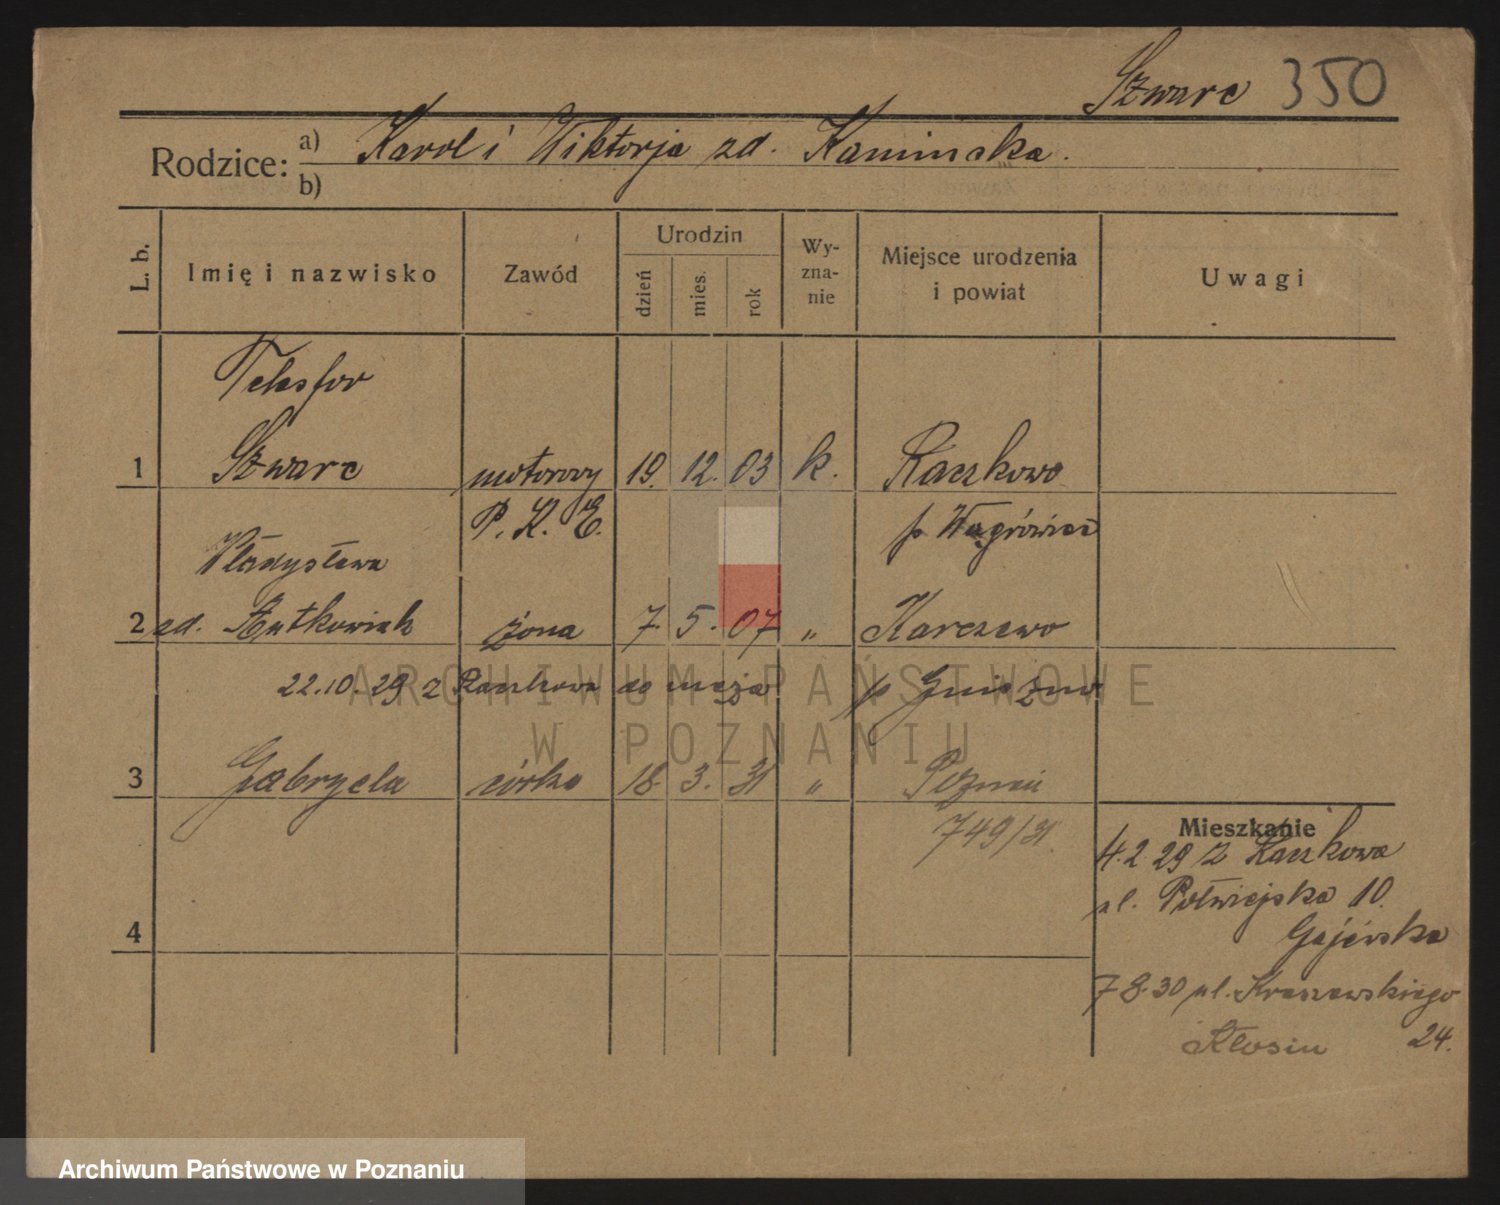 Szwarc 350
Rodzice: a) Karol i Wiktorja zd. Kaminska.
b)
L. b. Imię i nazwisko Zawód Urodzin dzień mies. rok Wy-zna-nie Miejsce urodzenia i powiat Uwagi
Telesfor
1 Szwarc motorowy 19. 12. 03 k. Raczkowo
P. K. E. p Wągrówiec
Władysława
2 zd. żona 7. 5. 07 „ Karczewo
22.10.29 z Raczkowa do męża p Gniezno
3 Gabryela córka 18. 3. 31 „ Poznań
749/31
Mieszkanie
4.2 29 z Raczkowa
ul. Półwiejska 10.
4 Gajewska
7 8.30 ul. Kraszewskiego
24.
ARCHIWUM PAŃSTWOWE
W POZNANIU
Archiwum Państwowe w Poznaniu